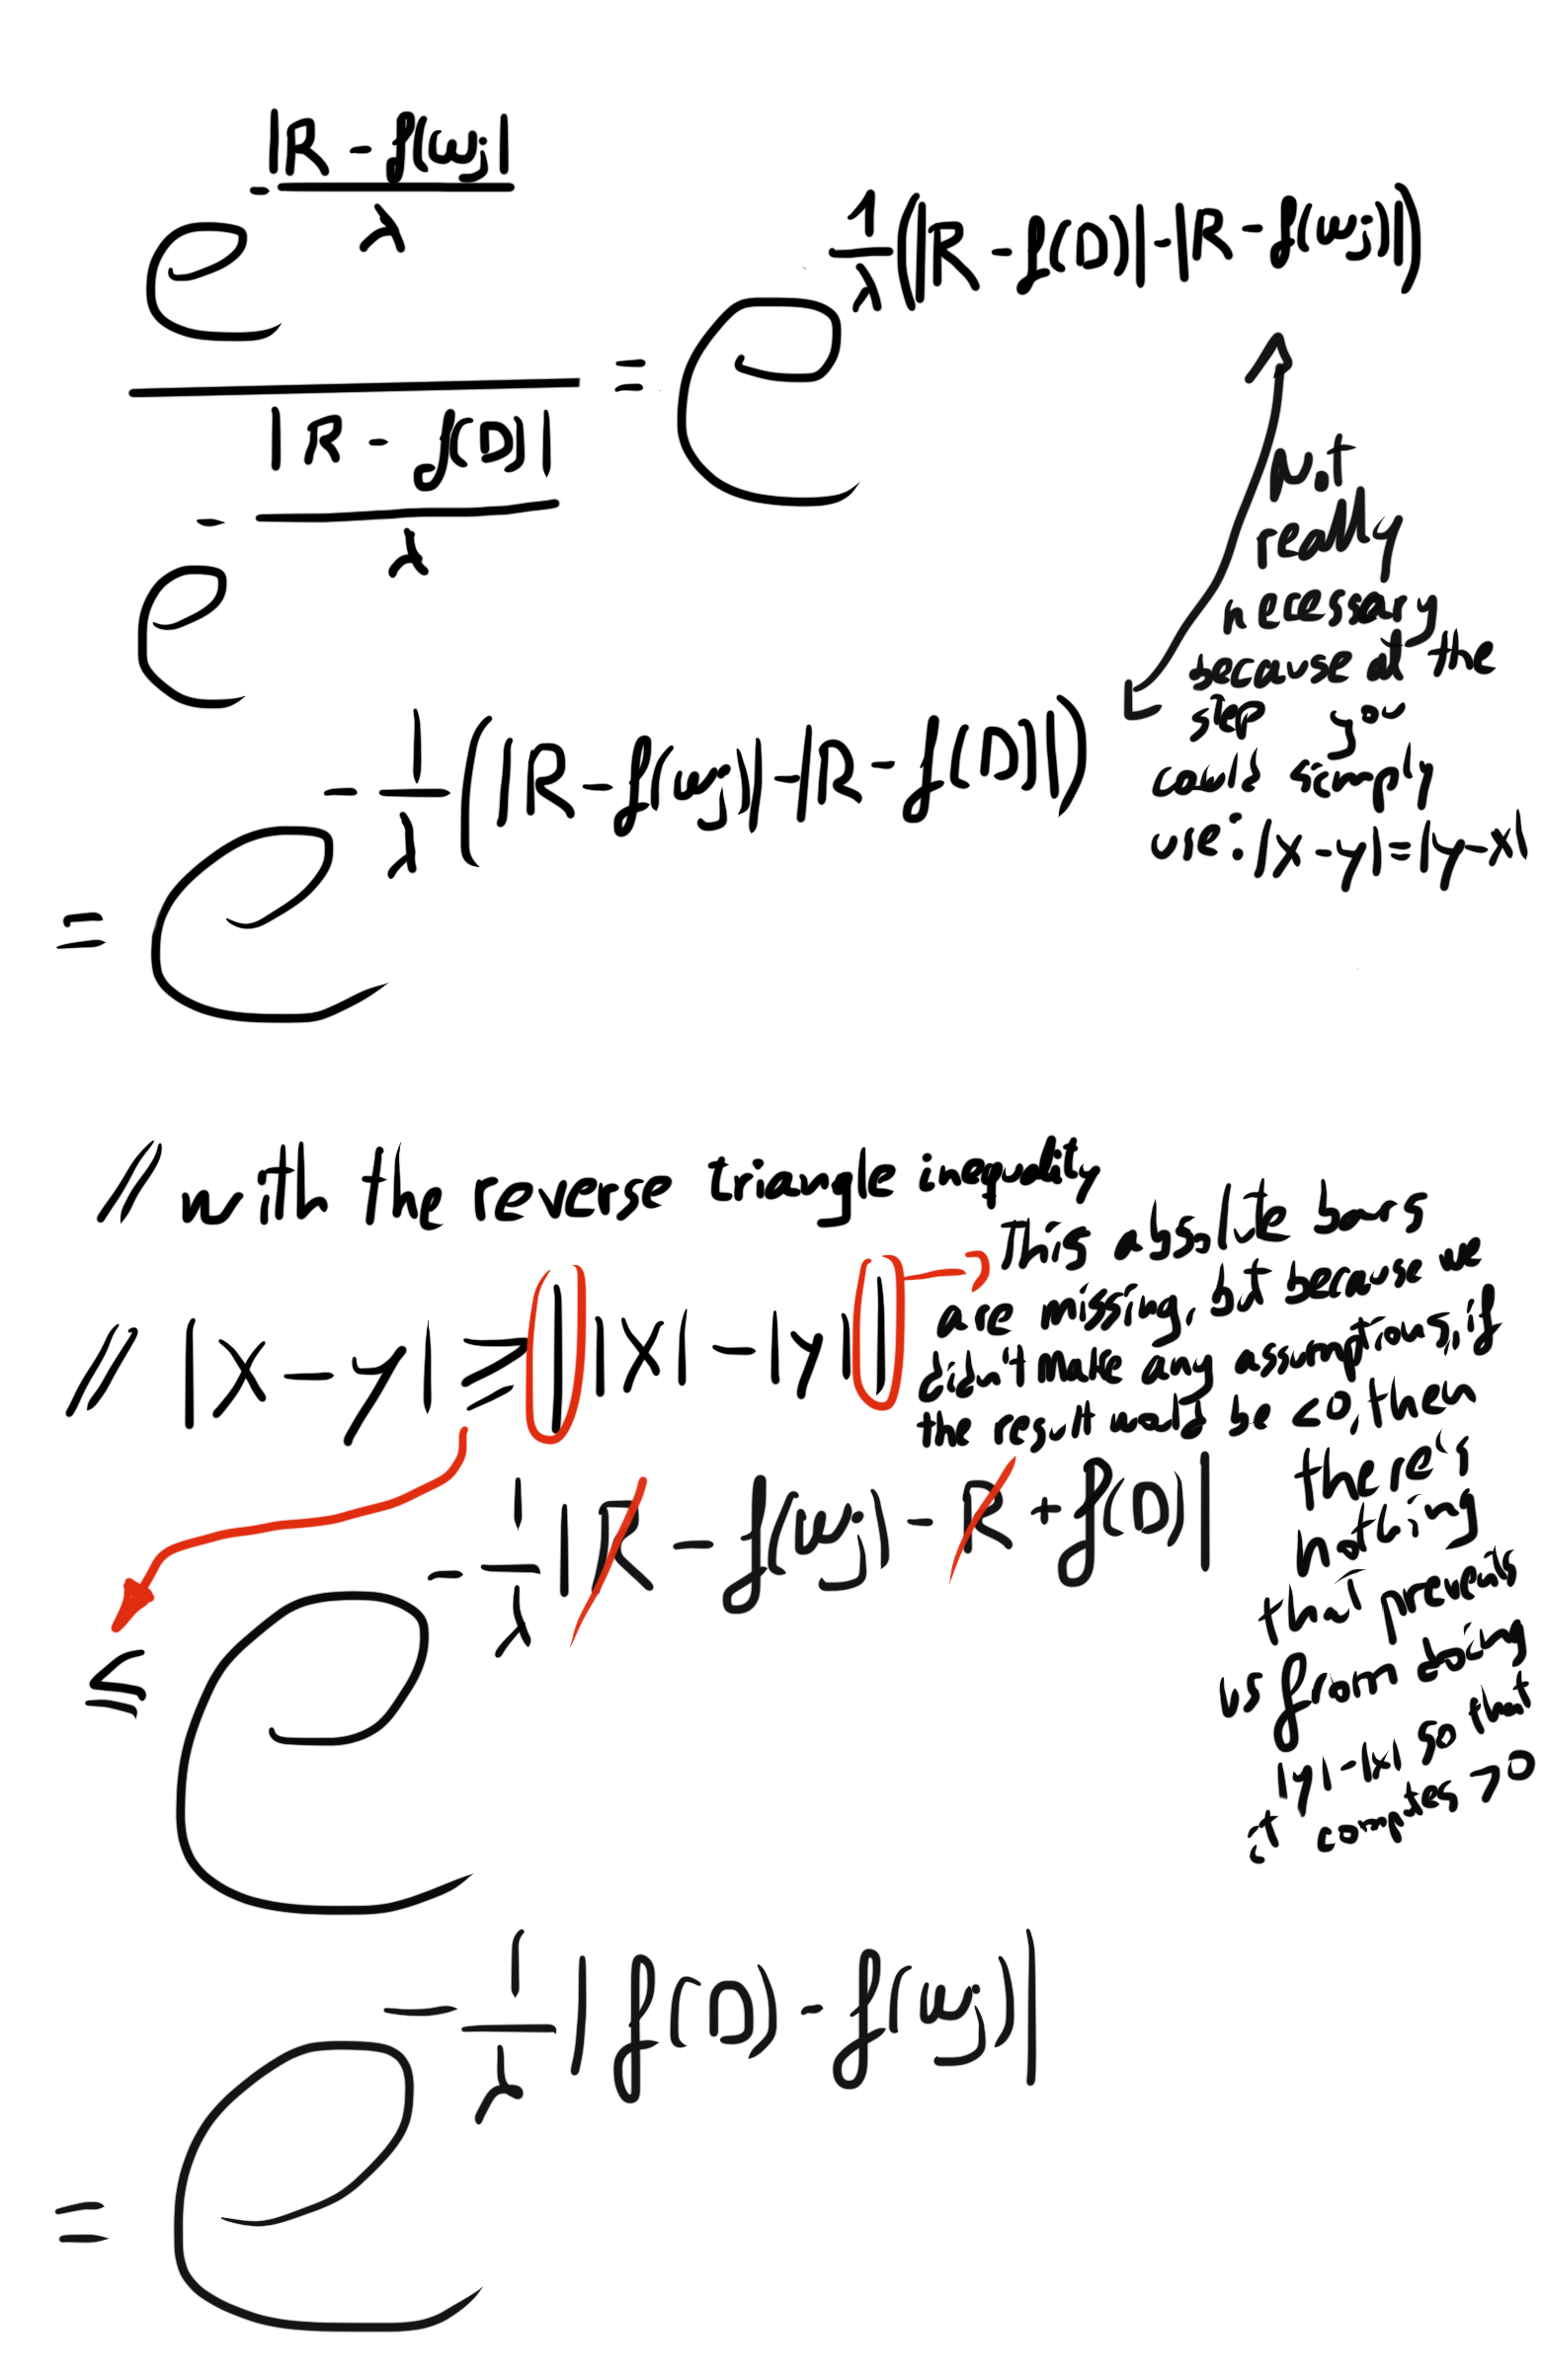 e^{-\frac{|R - f(w_j|}{λ}} / e^{-\frac{|R - f(D)|}{λ}} = e^{\frac{1}{λ}(|R - f(D)| - |R - f(w_j)|)}
Not
really
necessary
because at the
step you
could simply
use: |x - y| = |y - x|
= e^{-\frac{1}{λ}(|R - f(w_j)| - |R - f(D)|)}
// with the reverse triangle inequality
// |x - y| ≥ ||x| - |y||
This absolute bars
are missing, but because we
didn't make any assumptions, if
the result would be <0, then
there's
nothing
that prevents
us from doing
|y| - |x| so that
it computes >0
≤ e^{-\frac{1}{λ}|R - f(w_j) - R + f(D)|}
= e^{-\frac{1}{λ}|f(D) - f(w_j)|}